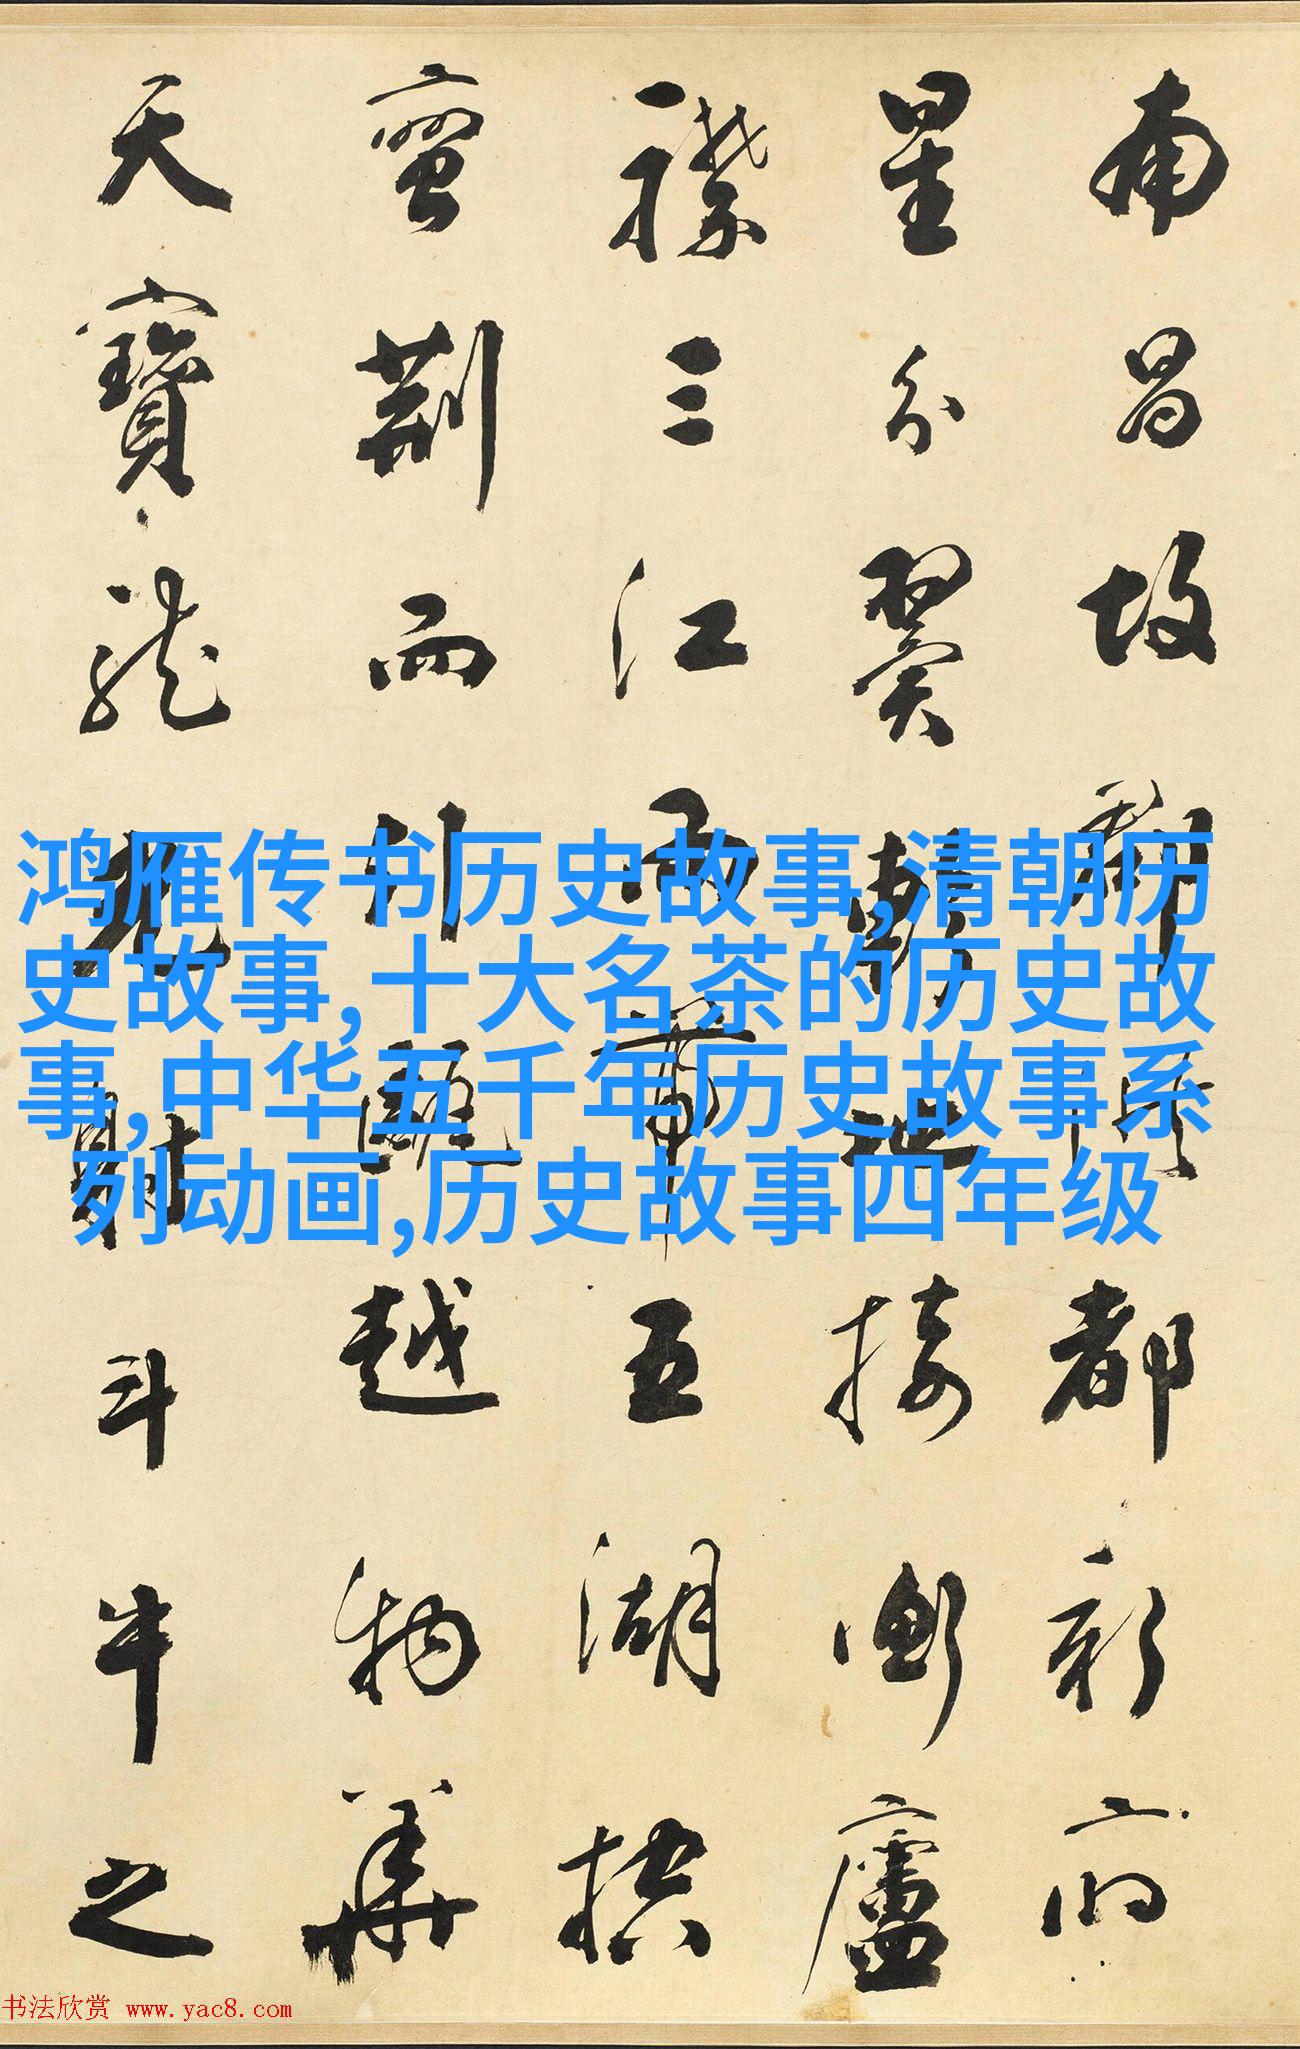 南昌故郡洪都新府
星分翼軫地接衡廬
襟三江而帶五湖控
蠻荊而引甌越物華
天寶龍光射斗牛之
鸿雁传书历史故事,清朝历
史故事,十大名茶的历史故
事,中华五千年历史故事系
列动画,历史故事四年级
书法欣赏 www.yac8.com